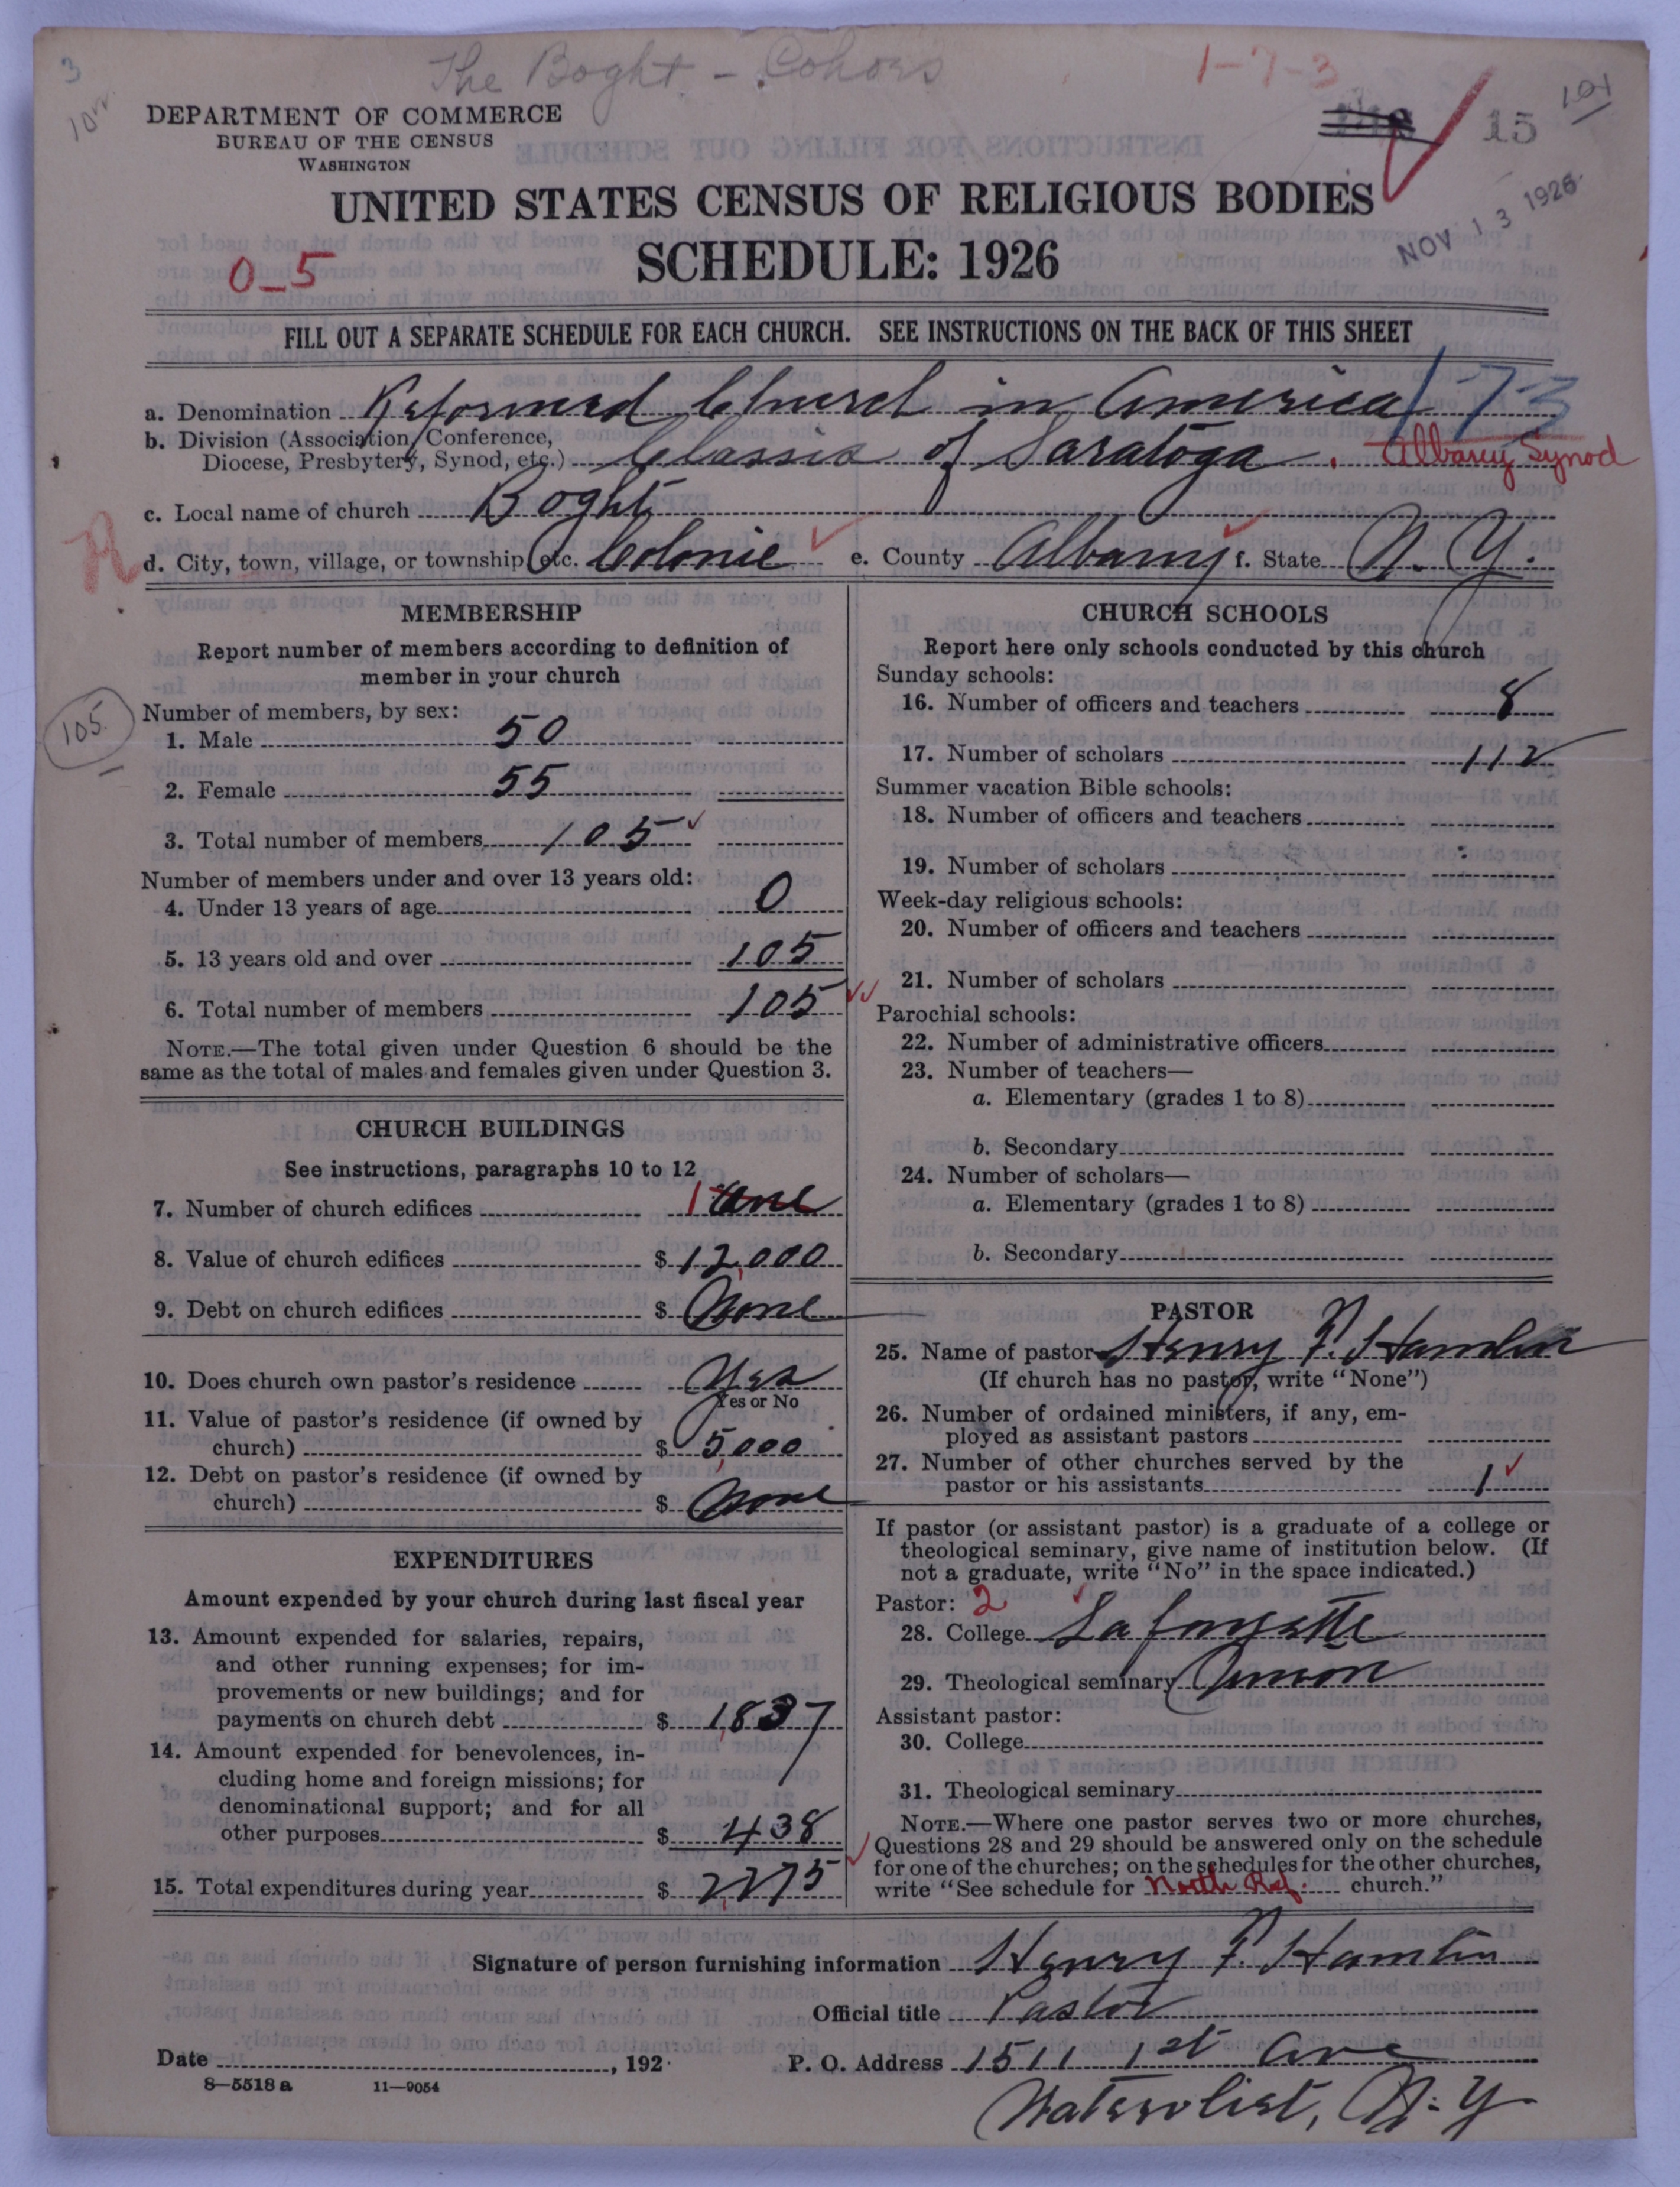 3
The Boght - Cohoes
1-7-3
101
15
NOV 13 1926
DEPARTMENT OF COMMERCE
BUREAU OF THE CENSUS
WASHINGTON
UNITED STATES CENSUS OF RELIGIOUS BODIES
SCHEDULE: 1926
0-5
FILL OUT A SEPARATE SCHEDULE FOR EACH CHURCH. SEE INSTRUCTIONS ON THE BACK OF THIS SHEET
a. Denomination Reformed Church in America 1-73
b. Division (Association, Conference,
Diocese, Presbytery, Synod, etc.) Classis of Saratoga. Albany Synod
c. Local name of church Boght
d. City, town, village, or township, etc. Colonie e. County Albany f. State N. Y.
MEMBERSHIP
Report number of members according to definition of
member in your church
Number of members, by sex:
105
1. Male 50
2. Female 55
3. Total number of members 105
Number of members under and over 13 years old:
4. Under 13 years of age 0
5. 13 years old and over 105
6. Total number of members 105
NOTE.—The total given under Question 6 should be the
same as the total of males and females given under Question 3.
CHURCH BUILDINGS
See instructions, paragraphs 10 to 12
7. Number of church edifices 1 One
8. Value of church edifices $ 12,000
9. Debt on church edifices $ None
10. Does church own pastor's residence Yes
Yes or No
11. Value of pastor's residence (if owned by
church) $ 5,000
12. Debt on pastor's residence (if owned by
church) $ None
EXPENDITURES
Amount expended by your church during last fiscal year
13. Amount expended for salaries, repairs,
and other running expenses; for im-
provements or new buildings; and for
payments on church debt $ 1,837
14. Amount expended for benevolences, in-
cluding home and foreign missions; for
denominational support; and for all
other purposes $ 438
15. Total expenditures during year $ 2,275
CHURCH SCHOOLS
Report here only schools conducted by this church
Sunday schools:
16. Number of officers and teachers 8
17. Number of scholars 112
Summer vacation Bible schools:
18. Number of officers and teachers
19. Number of scholars
Week-day religious schools:
20. Number of officers and teachers
21. Number of scholars
Parochial schools:
22. Number of administrative officers
23. Number of teachers—
a. Elementary (grades 1 to 8)
b. Secondary
24. Number of scholars—
a. Elementary (grades 1 to 8)
b. Secondary
PASTOR
25. Name of pastor Henry F. Hamlin
(If church has no pastor, write "None")
26. Number of ordained ministers, if any, em-
ployed as assistant pastors
27. Number of other churches served by the
pastor or his assistants 1
If pastor (or assistant pastor) is a graduate of a college or
theological seminary, give name of institution below. (If
not a graduate, write "No" in the space indicated.)
Pastor: 2
28. College Lafayette
29. Theological seminary Union
Assistant pastor:
30. College
31. Theological seminary
NOTE.—Where one pastor serves two or more churches,
Questions 28 and 29 should be answered only on the schedule
for one of the churches; on the schedules for the other churches,
write "See schedule for North Ref. church."
Signature of person furnishing information Henry F. Hamlin
Official title Pastor
Date , 192
P. O. Address 1511 1st Ave
Watervliet, N. Y
8—5518 a 11—9054